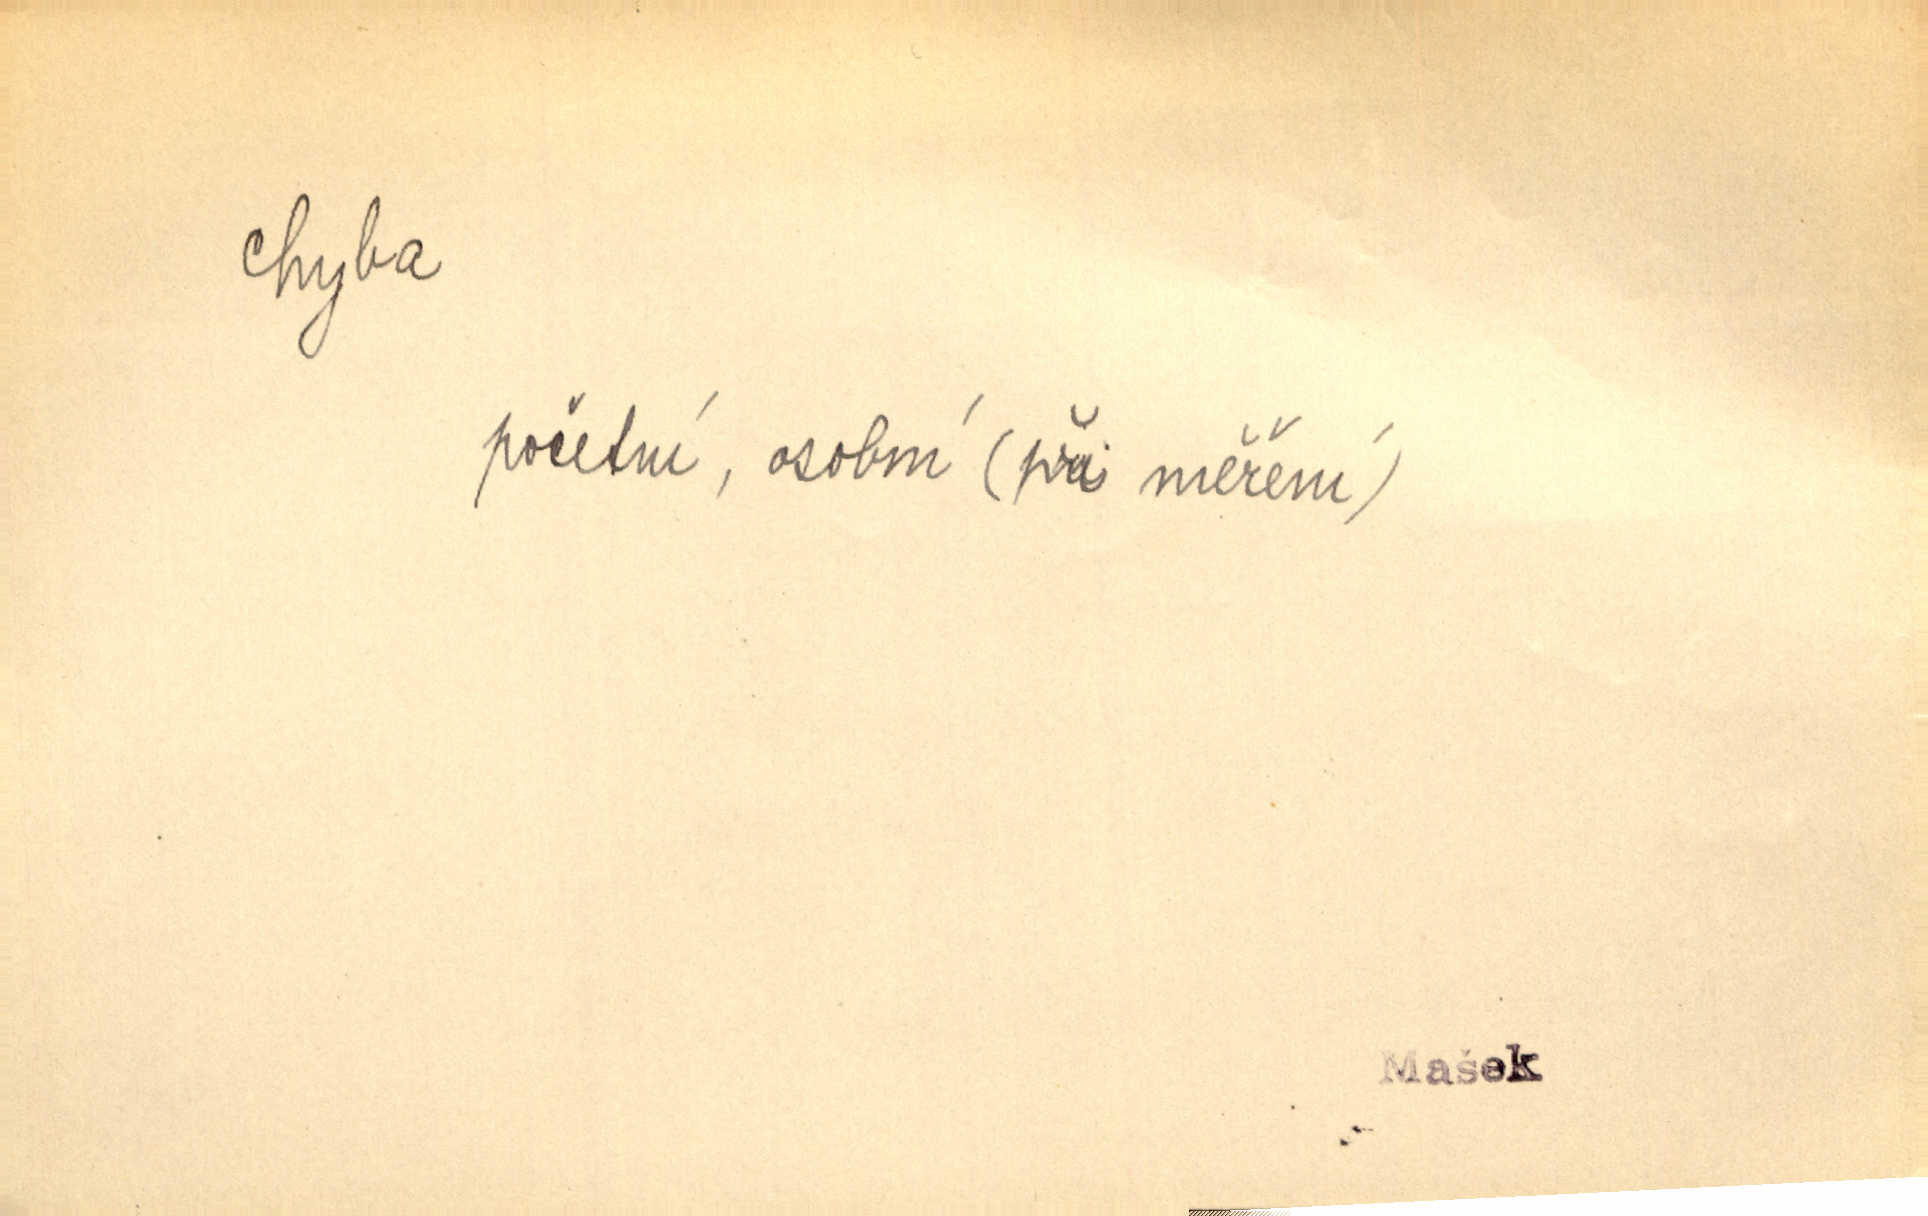 chyba
početní, osobní (při měření)
Mašek